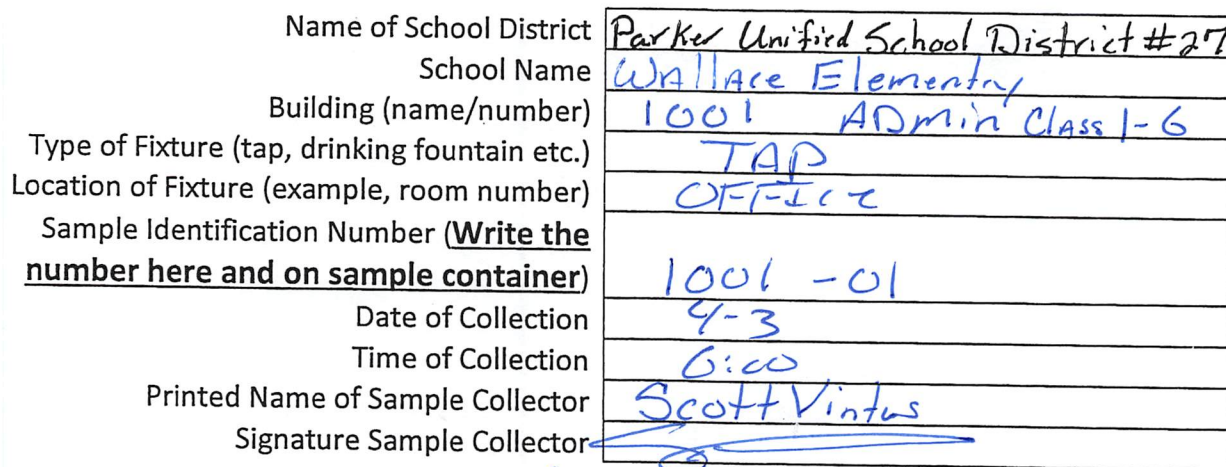 Name of School District Parker Unified School District #27
School Name Wallace Elementry
Building (name/number) 1001 ADmin Class 1-6
Type of Fixture (tap, drinking fountain etc.) TAP
Location of Fixture (example, room number) OFFICE
Sample Identification Number (Write the
number here and on sample container) 1001 -01
Date of Collection 4-3
Time of Collection 6:00
Printed Name of Sample Collector Scott
Signature Sample Collector